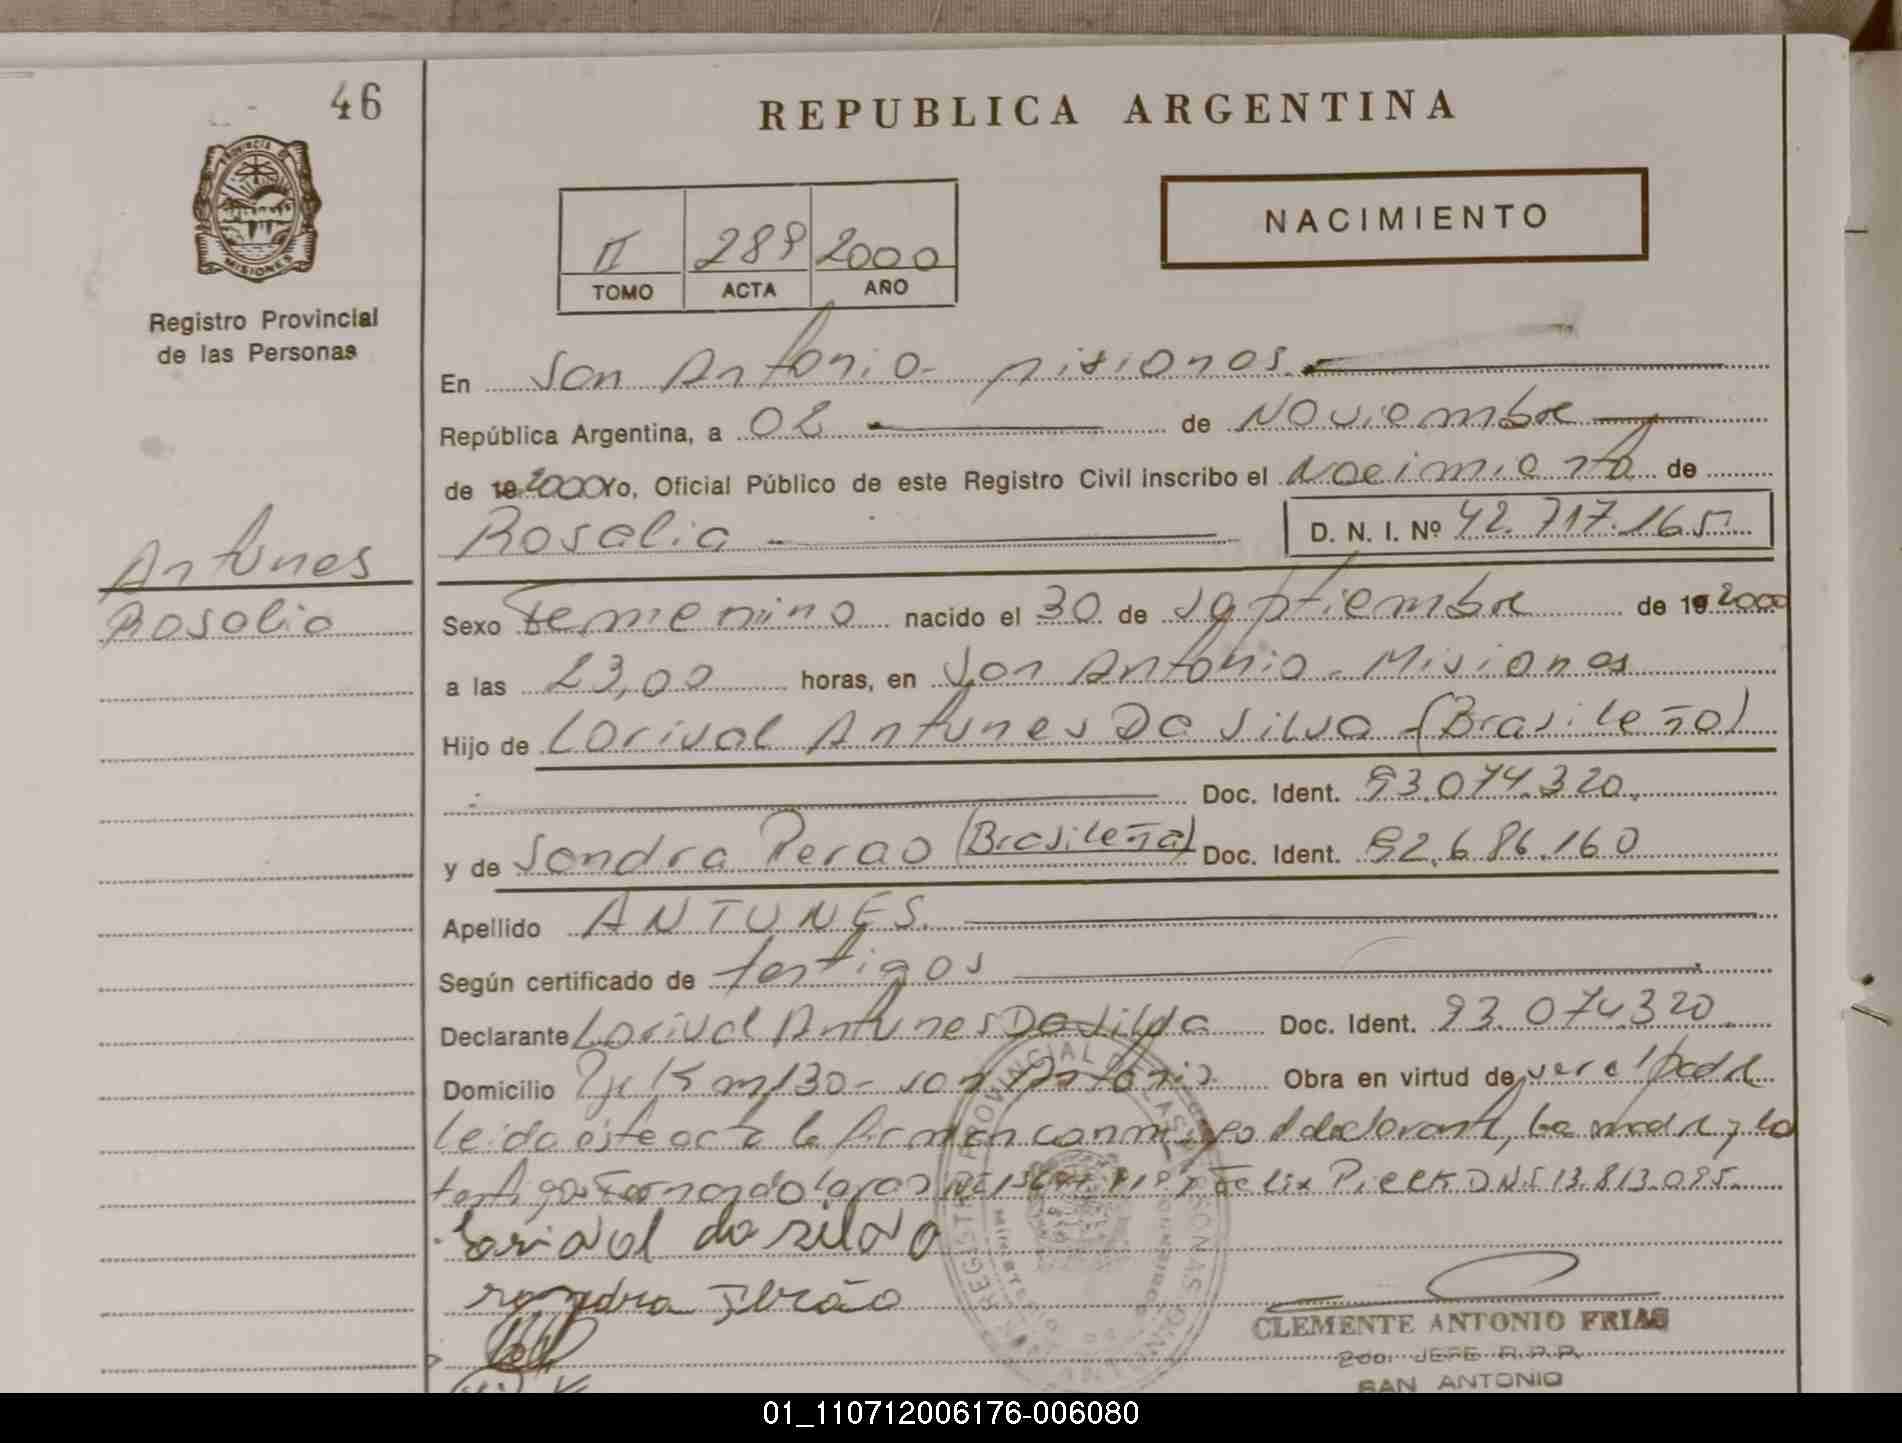 46
REPUBLICA ARGENTINA
PROVINCIA DE
MISIONES
Registro Provincial
de las Personas
II 289 2000
TOMO ACTA AÑO
NACIMIENTO
En San Antonio - Misiones.
República Argentina, a 02 de Noviembre
de 19 2000 Yo, Oficial Público de este Registro Civil inscribo el Nacimiento de
Rosalia D. N. I. Nº 42.717.165
Antunes
Rosalia
Sexo Femenino nacido el 30 de Septiembre de 19 2000
a las 23,00 horas, en San Antonio - Misiones
Hijo de Lorival Antunes Da Silva (Brasileño)
Doc. Ident. 93.074.320.
y de Sandra Perao (Brasileña) Doc. Ident. 92.686.160
Apellido ANTUNES.
Según certificado de testigos
Declarante Lorival Antunes Da Silva Doc. Ident. 93.074.320.
Domicilio Pje Km 130 - San Antonio. Obra en virtud de ser el padre
leida este acta la firman conmigo el declarante, la madre y lo
testigos Fernando Felix Pieck DNI 13.813.095.
Lorival da silva
sandra Perão
REGISTRO PROVINCIAL DE LAS PERSONAS
CLEMENTE ANTONIO FRIAS
2do. JEFE R.P.P.
SAN ANTONIO
01_110712006176-006080